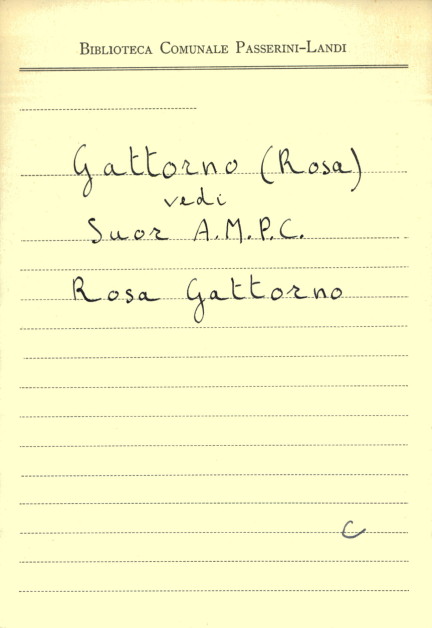 Biblioteca Comunale Passerini-Landi
Gattorno (Rosa)
vedi
Suor A.M.P.C.
Rosa Gattorno
C